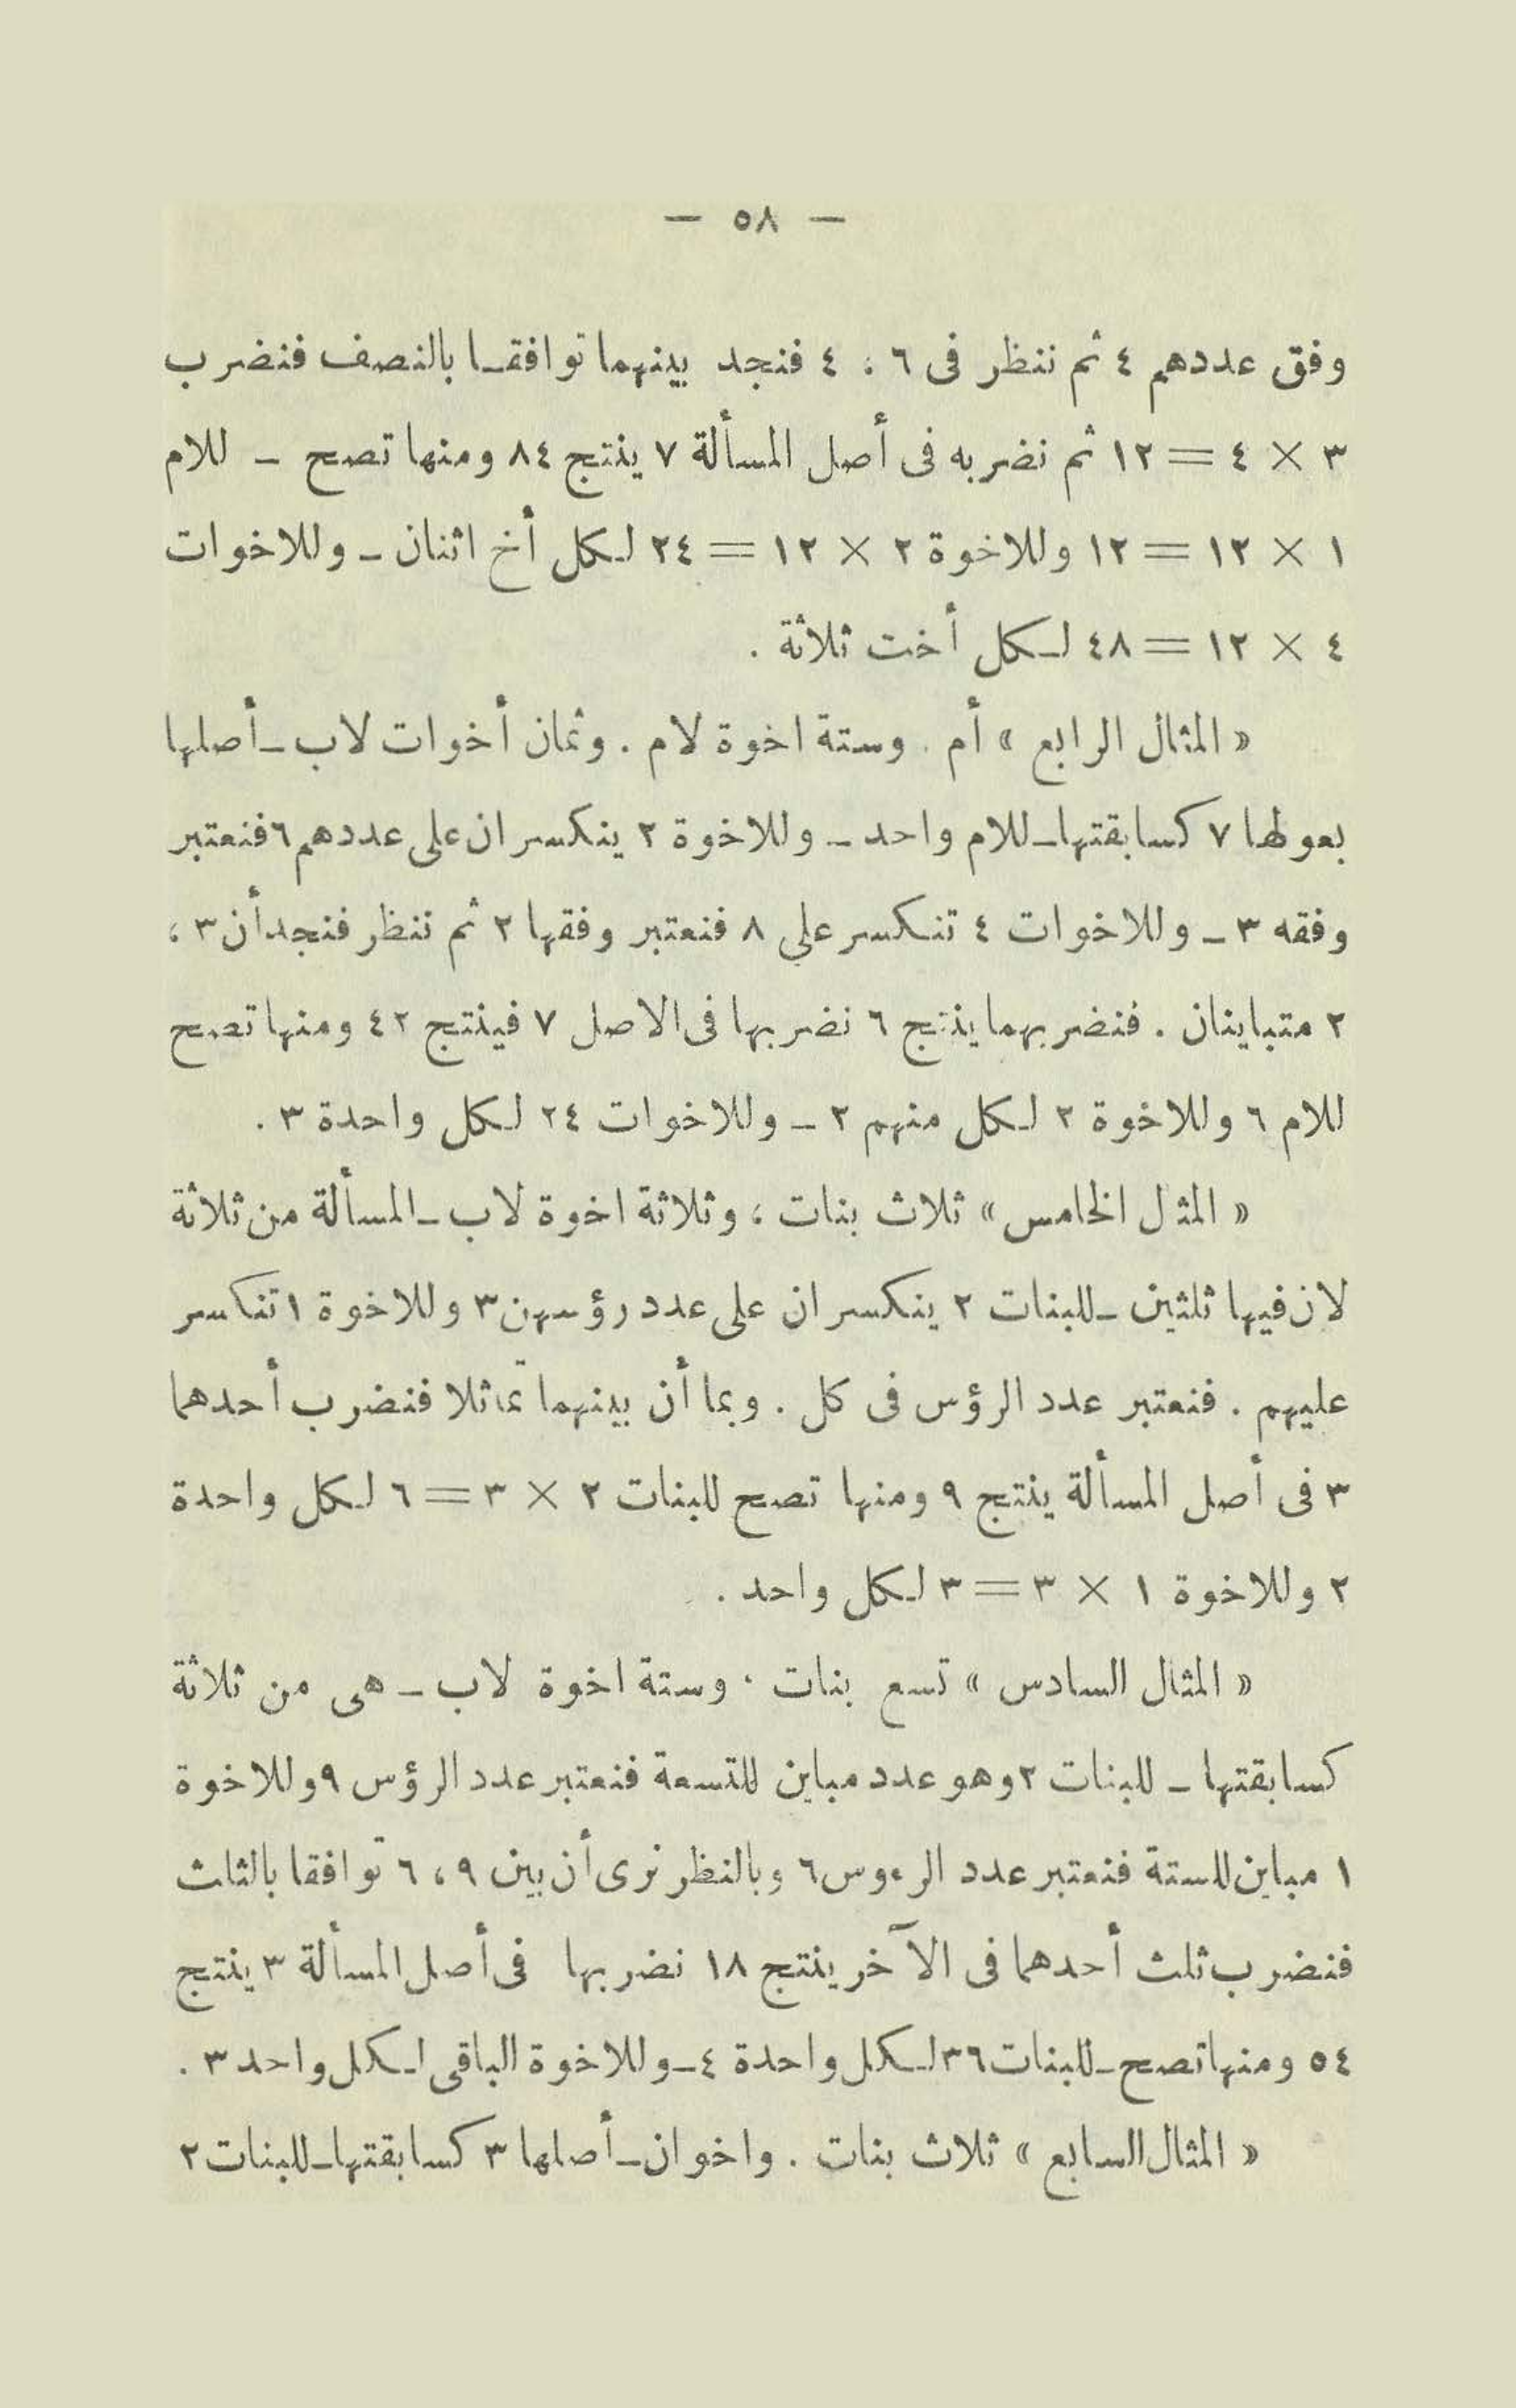 — ٥٨ —
وفق عددهم ٤ ثم ننظر فى ٦ ، ٤ فنجد بينهما توافقـا بالنصف فنضرب
٣ × ٤ = ١٢ ثم نضربه فى أصل المسألة ٧ ينتج ٨٤ ومنها تصح ــ للام
١ × ١٢ = ١٢ وللاخوة ٢ × ١٢ = ٢٤ لـكل أخ اثنان ــ وللاخوات
٤ × ١٢ = ٤٨ لـكل أخت ثلاثة .
« المثال الرابع » أم . وستة اخوة لام . وثمان أخوات لاب ــ أصلها
بعولها ٧ كسابقتها ــ للام واحد ــ وللاخوة ٢ ينكسران على عددهم ٦ فنعتبر
وفقه ٣ ــ وللاخوات ٤ تنكسر على ٨ فنعتبر وفقها ٢ ثم ننظر فنجد أن ٣ ،
٢ متباينان . فنضربهما ينتج ٦ نضربها فى الاصل ٧ فينتج ٤٢ ومنها تصح
للام ٦ وللاخوة ٢ لـكل منهم ٢ ــ وللاخوات ٢٤ لـكل واحدة ٣ .
« المثل الخامس » ثلاث بنات ، وثلاثة اخوة لاب ــ المسألة من ثلاثة
لان فيها ثلثين ــ للبنات ٢ ينكسران على عدد رؤسهن ٣ وللاخوة ١ تنكسر
عليهم . فنعتبر عدد الرؤس فى كل . وبما أن بينهما تماثلا فنضرب أحدهما
٣ فى أصل المسألة ينتج ٩ ومنها تصح للبنات ٢ × ٣ = ٦ لـكل واحدة
٢ وللاخوة ١ × ٣ = ٣ لـكل واحد .
« المثال السادس » تسع بنات ، وستة اخوة لاب ــ هى من ثلاثة
كسابقتها ــ للبنات ٢ وهو عدد مباين للتسعة فنعتبر عدد الرؤس ٩ وللاخوة
١ مباين للستة فنعتبر عدد الرءوس ٦ وبالنظر نرى أن بين ٩ ، ٦ توافقا بالثلث
فنضرب ثلث أحدهما فى الآخر ينتج ١٨ نضربها فى أصل المسألة ٣ ينتج
٥٤ ومنها تصح ــ للبنات ٣٦ لـكل واحدة ٤ ــ وللاخوة الباقى لـكل واحد ٣ .
« المثال السابع » ثلاث بنات . واخوان ــ أصلها ٣ كسابقتها ــ للبنات ٢